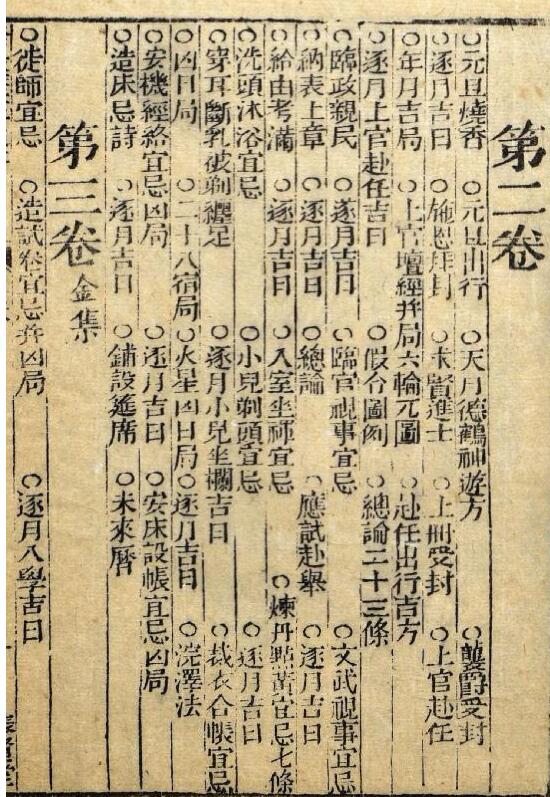 第二卷
○元旦燒香 ○元旦出行 ○天月德鶴神遊方 ○襲爵受封
○逐月吉日 ○施恩拜封 ○求賢進士 ○上冊受封 ○上官赴任
○年月吉局 ○上官壇經并局六輪元圖 ○赴任出行吉方
○逐月上官赴任吉日 ○假令圖例 ○總論二十三條
○臨政親民 ○逐月吉日 ○臨官視事宜忌 ○文武視事宜忌
○納表上章 ○逐月吉日 ○總論 ○應試赴舉 ○逐月吉日
○給由考滿 ○逐月吉日 ○入室坐禪宜忌 ○煉丹點黃宜忌七條
○洗頭沐浴宜忌 ○小兒剃頭宜忌 ○逐月吉日
○穿耳斷乳破剃纏足 ○逐月小兒坐欄吉日 ○裁衣合帳宜忌
○凶日局 ○二十八宿局 ○火星凶日局 ○逐月吉日 ○浣澤法
○安機經絡宜忌凶局 ○逐月吉日 ○安床設帳宜忌凶局
○造床忌詩 ○逐月吉日 ○鋪設筵席 ○未來曆
第三卷 金集
○徒師宜忌 ○造試卷宜忌并凶局 ○逐月入學吉日